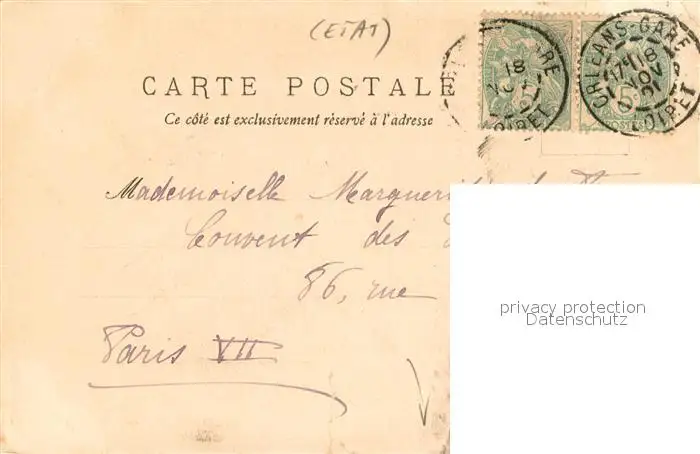 (ETAT)
CARTE POSTALE
Ce côté est exclusivement réservé à l'adresse
ORLEANS-GARE
18
NOV
LOIRET
Mademoiselle
Couvent des
86, rue
Paris VII
privacy protection
Datenschutz